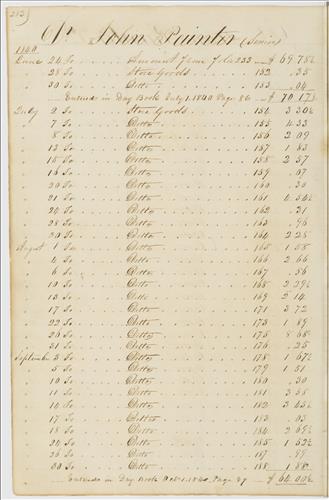 212
Dr. John Painter (Senior)
1840
June 24 To Amount from folio 233 $ 69.78½
" 28 To Store Goods 152 .35
" 30 To Ditto 153 .04
Entered in Day Book July 1, 1840 Page 86 $ 70.17½
July 2 To Store Goods 154 3 30½
" 7 To Ditto 155 4 33
" 8 To Ditto 156 2 09
" 13 To Ditto 157 1 83
" 15 To Ditto 158 2 57
" 16 To Ditto 159 .07
" 20 To Ditto 160 .30
" 21 To Ditto 161 4 54½
" 24 To Ditto 162 .21
" 28 To Ditto 163 .96
" 30 To Ditto 164 2 25
August 1 To Ditto 165 1 58
" 4 To Ditto 166 2 66
" 6 To Ditto 167 .56
" 10 To Ditto 168 2 29½
" 13 To Ditto 169 2 14
" 17 To Ditto 171 3 72
" 22 To Ditto 173 1 89
" 26 To Ditto 175 8 68
" 31 To Ditto 176 .25
September 3 To Ditto 178 1 67½
" 5 To Ditto 179 1 51
" 10 To Ditto 180 .30
" 11 To Ditto 181 3 58
" 14 To Ditto 182 3 45½
" 17 To Ditto 183 .03
" 18 To Ditto 184 2 69½
" 24 To Ditto 185 1 52½
" 26 To Ditto 187 .99
" 30 To Ditto 188 1 88
Entered in Day Book Oct 1, 1840, Page 87 $ 64.00½